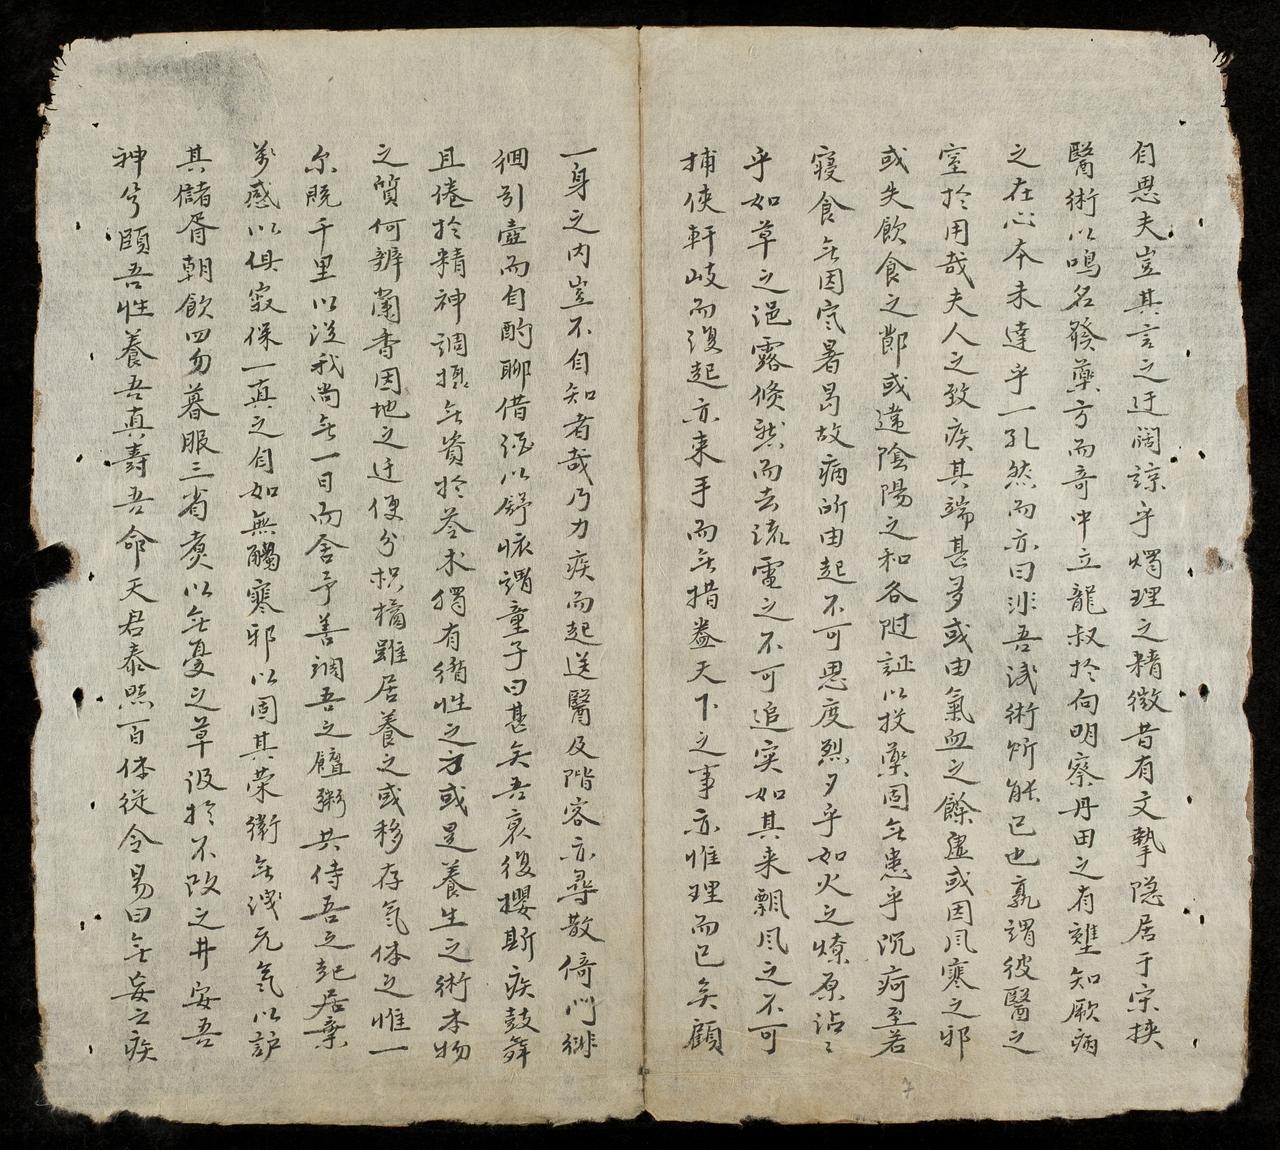 自思夫豈其言之迂闊諒乎燭理之精微昔有文摯隐居于宋挾
醫術以鳴名發藥方而奇中立龍叔於向明察丹田之有虚知厥病
之在心本未達乎一孔然而亦曰非吾淺術所能已也孰謂彼醫之
室於用哉夫人之致疾其端甚多或由氣血之餘虛或因風寒之邪
或失飲食之節或違陰陽之和各隨証以投藥固无患乎沉疴至若
寢食无因寒暑曷故病所由起不可思度烈夕乎如火之燎原沾〻
乎如草之浥露倏然而去流電之不可追突如其来飄風之不可
捕使軒岐而復起亦束手而无措盖天下之事亦惟理而已矣顧
一身之内豈不自知者哉乃力疾而起送醫及階客亦尋散倚門徘
徊引壺而自酌聊借酒以舒懷謂童子曰甚矣吾衰復攖斯疾鼓舞
且倦於精神調攝无資於苓术獨有循性之方或是養生之術本物
之質何辨蘭香因地之迁便分枳橘雖居養之或移存氣体之惟一
尔既千里以從我尚无一日而舍予善調吾之饘粥共侍吾之起居棄
萬感以俱寂保一真之自如無觸寒邪以固其荣衛无洩元氣以護
其儲胥朝飲四勿暮服三省煑以无憂之草汲於不改之井安吾
神兮頤吾性養吾真壽吾命天君泰然百体從令易曰无妄之疾